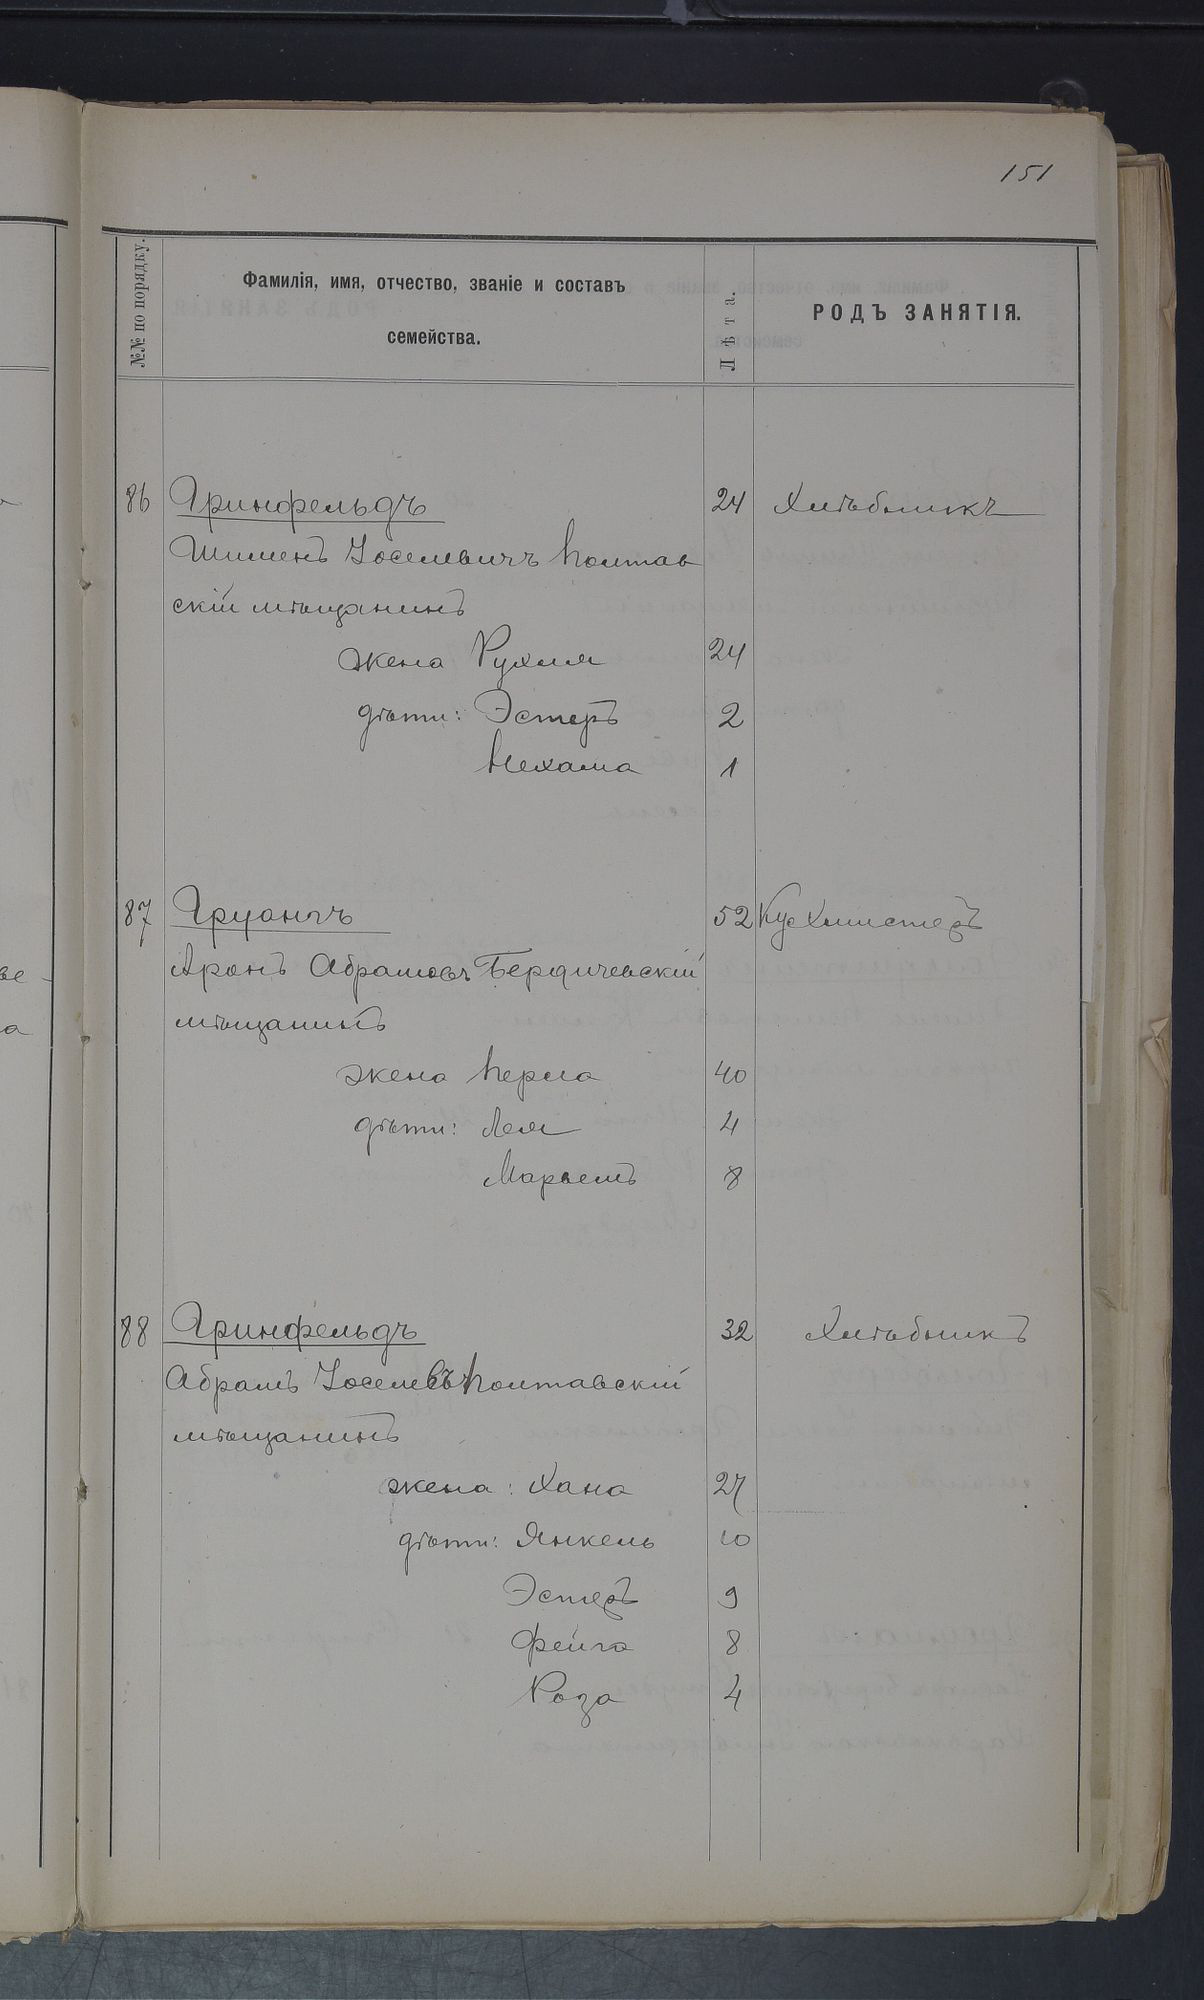 151
№№ по порядку.
Фамилія, имя, отчество, званіе и составъ
семейства.
Лѣта.
РОДЪ ЗАНЯТІЯ.
86 Гринфельдъ 24 Хлѣбникъ
Шименъ Іоселевичъ Полтав
скій мѣщанинъ
жена Рухля 24
дѣти: Эстеръ 2
Нехама 1
87 52 Кухмистеръ
Аронъ Абрамовъ Бердичевскій
мѣщанинъ
жена Перла 40
дѣти: Лея 4
Марьемъ 8
88 Гринфельдъ 32 Хлѣбникъ
Абрамъ Іоселевъ Полтавскій
мѣщанинъ
жена: Хана 27
дѣти: Янкель 10
Эстеръ 9
Фейга 8
Роза 4